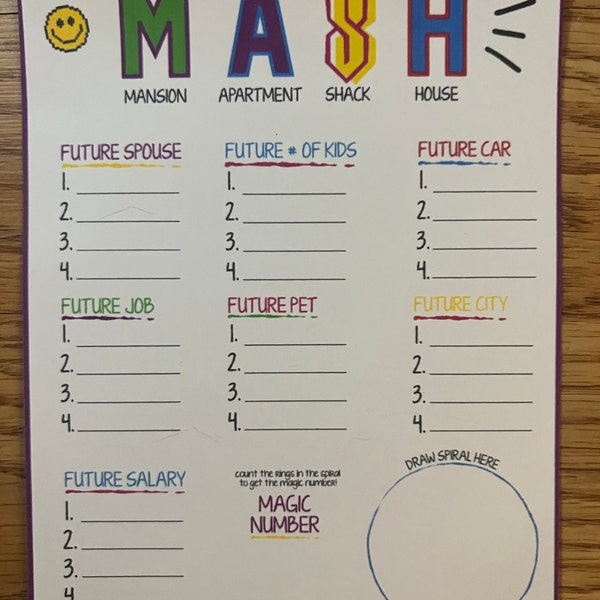 MASH
MANSION APARTMENT SHACK HOUSE
FUTURE SPOUSE
1.
2.
3.
4.
FUTURE # OF KIDS
1.
2.
3.
4.
FUTURE CAR
1.
2.
3.
4.
FUTURE JOB
1.
2.
3.
4.
FUTURE PET
1.
2.
3.
4.
FUTURE CITY
1.
2.
3.
4.
FUTURE SALARY
1.
2.
3.
4.
count the rings in the spiral
to get the magic number!
MAGIC
NUMBER
DRAW SPIRAL HERE